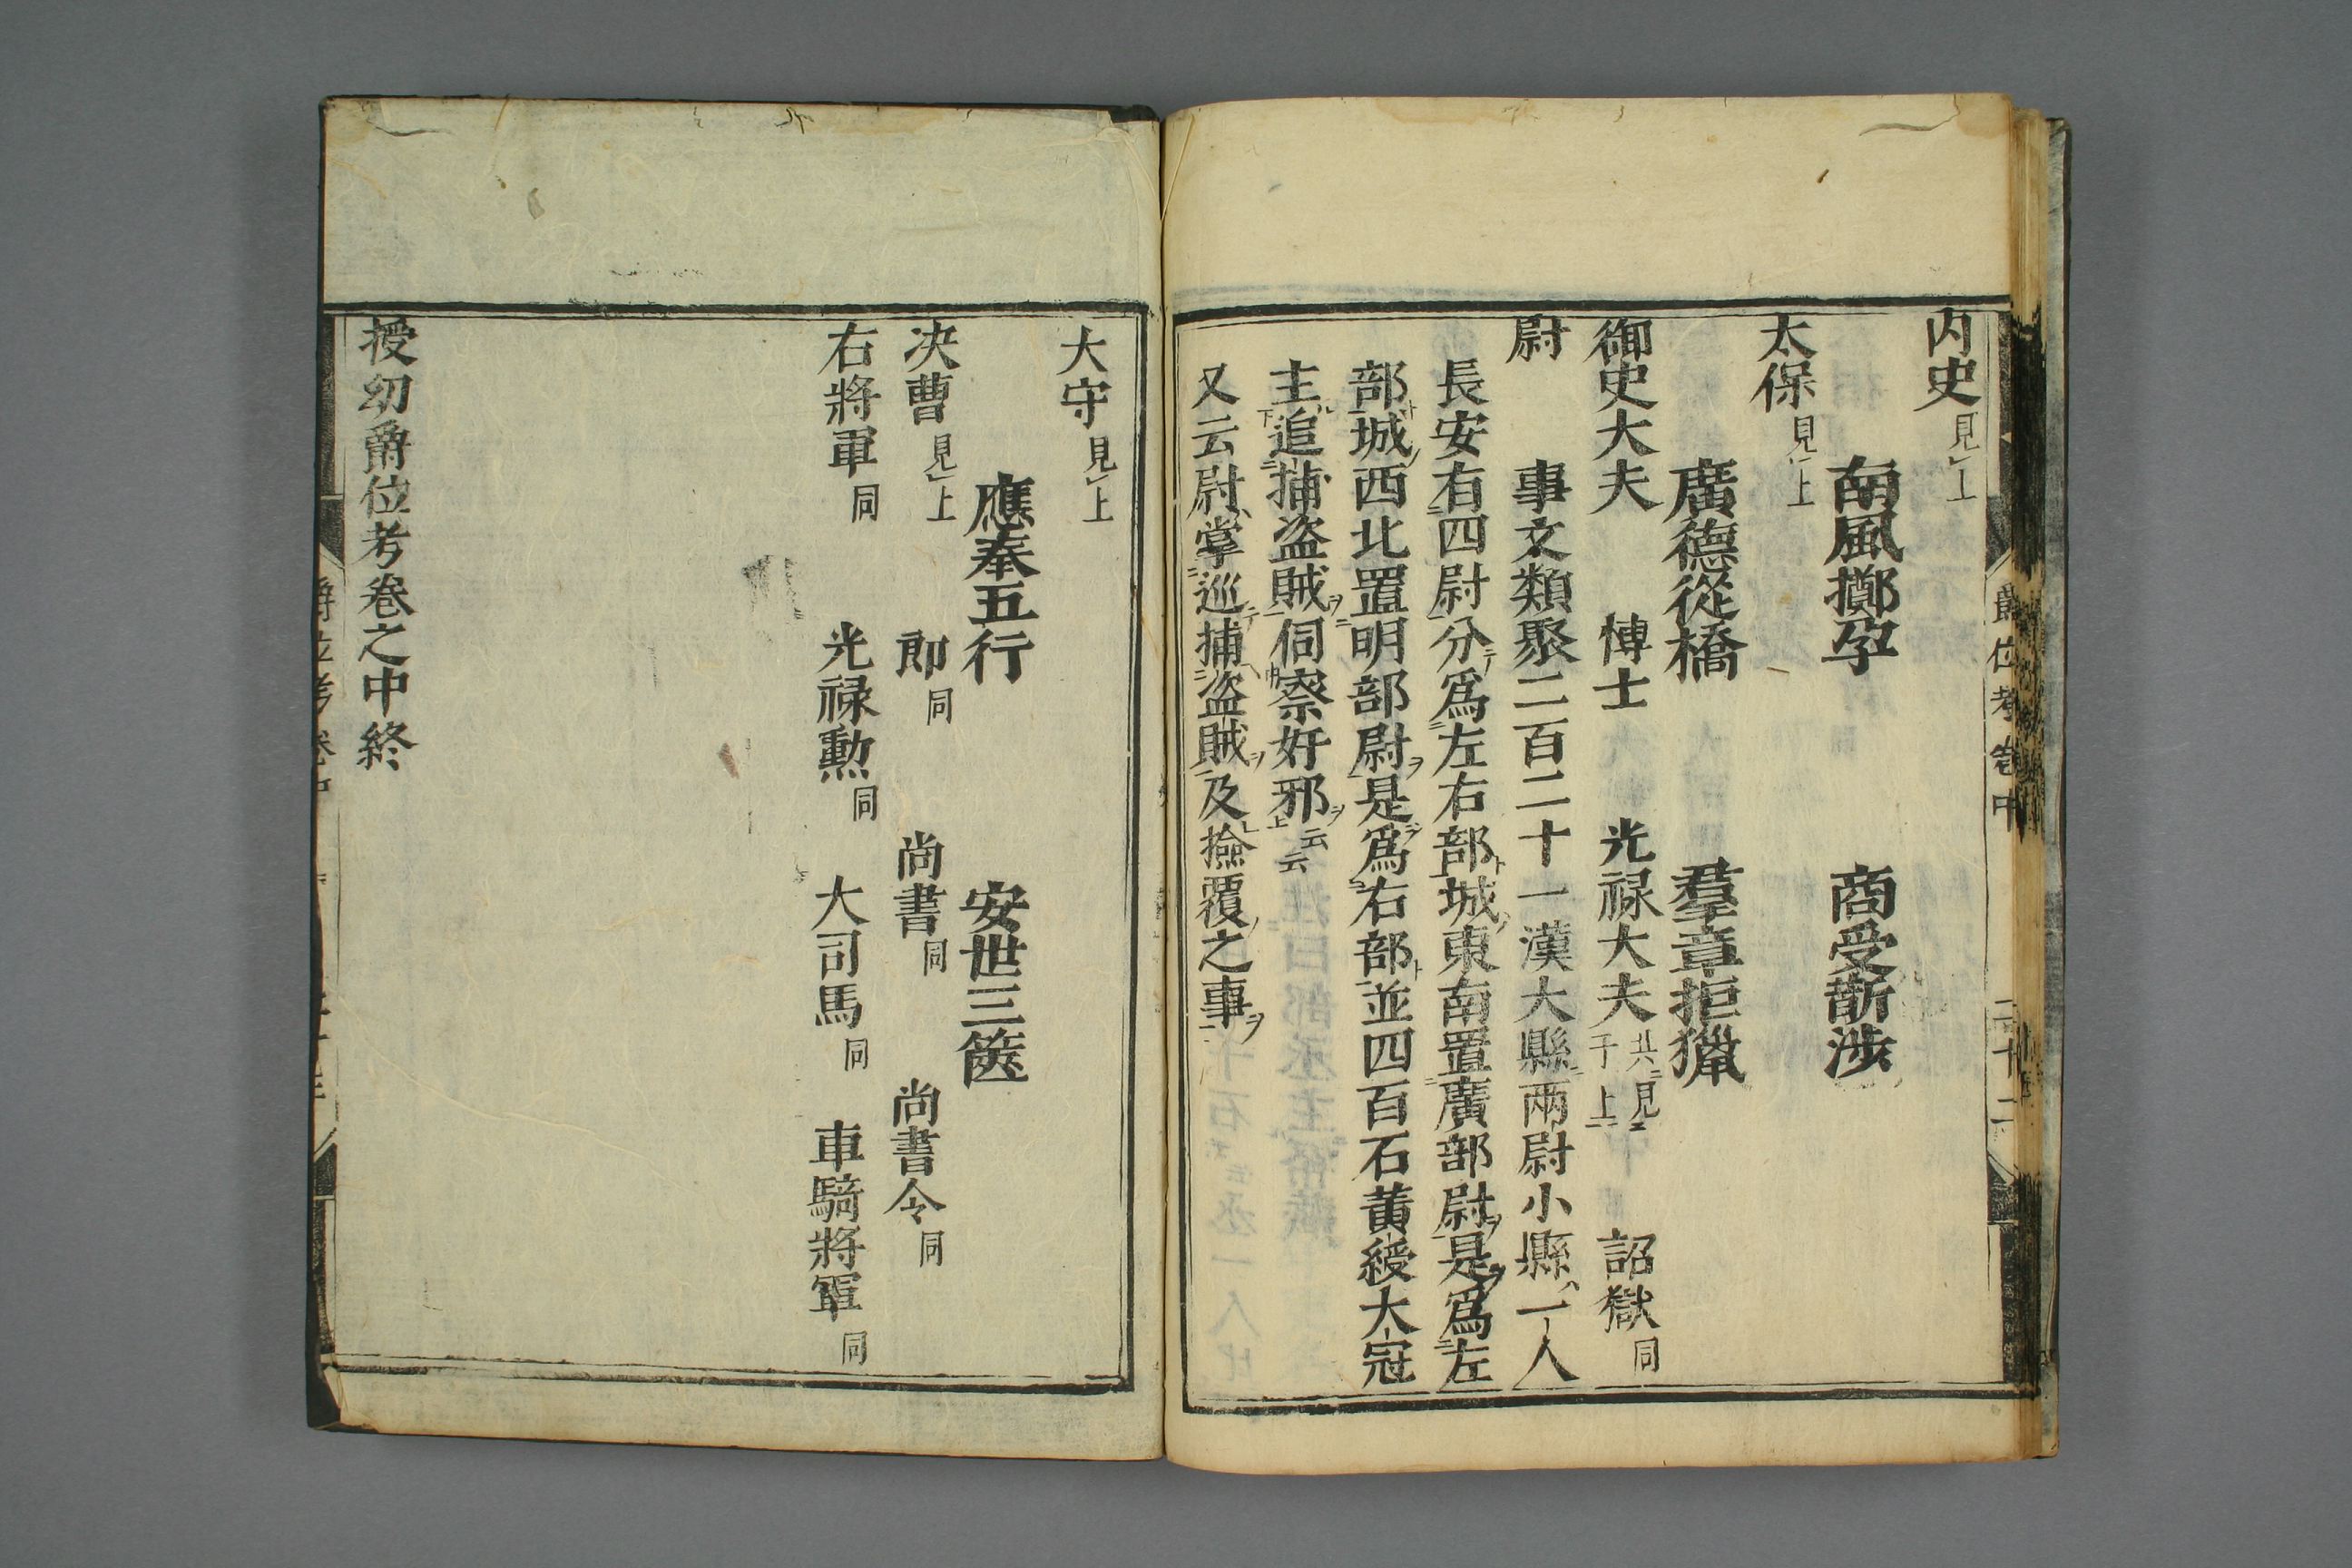 内史見上
南風擲孕　商受斮渉
太保見上
廣德從橋　羣章拒獵
御史大夫　博士　光禄大夫共見于上　詔獄同
尉　事文類聚二百二十一漢大縣兩尉小縣一人
長安有四尉分爲左右部城東南置廣部尉是爲左
部城西北置明部尉是爲右部並四百石黄綬大冠
主追捕盗賊伺察奸邪云云
又云尉掌巡捕盗賊及撿覆之事
爵位考卷中　二十二
大守見上
應奉五行　安世三篋
决曹見上　郎同　尚書同　尚書令同
右將軍同　光禄勲同　大司馬同　車騎將軍同
授幼爵位考卷之中終